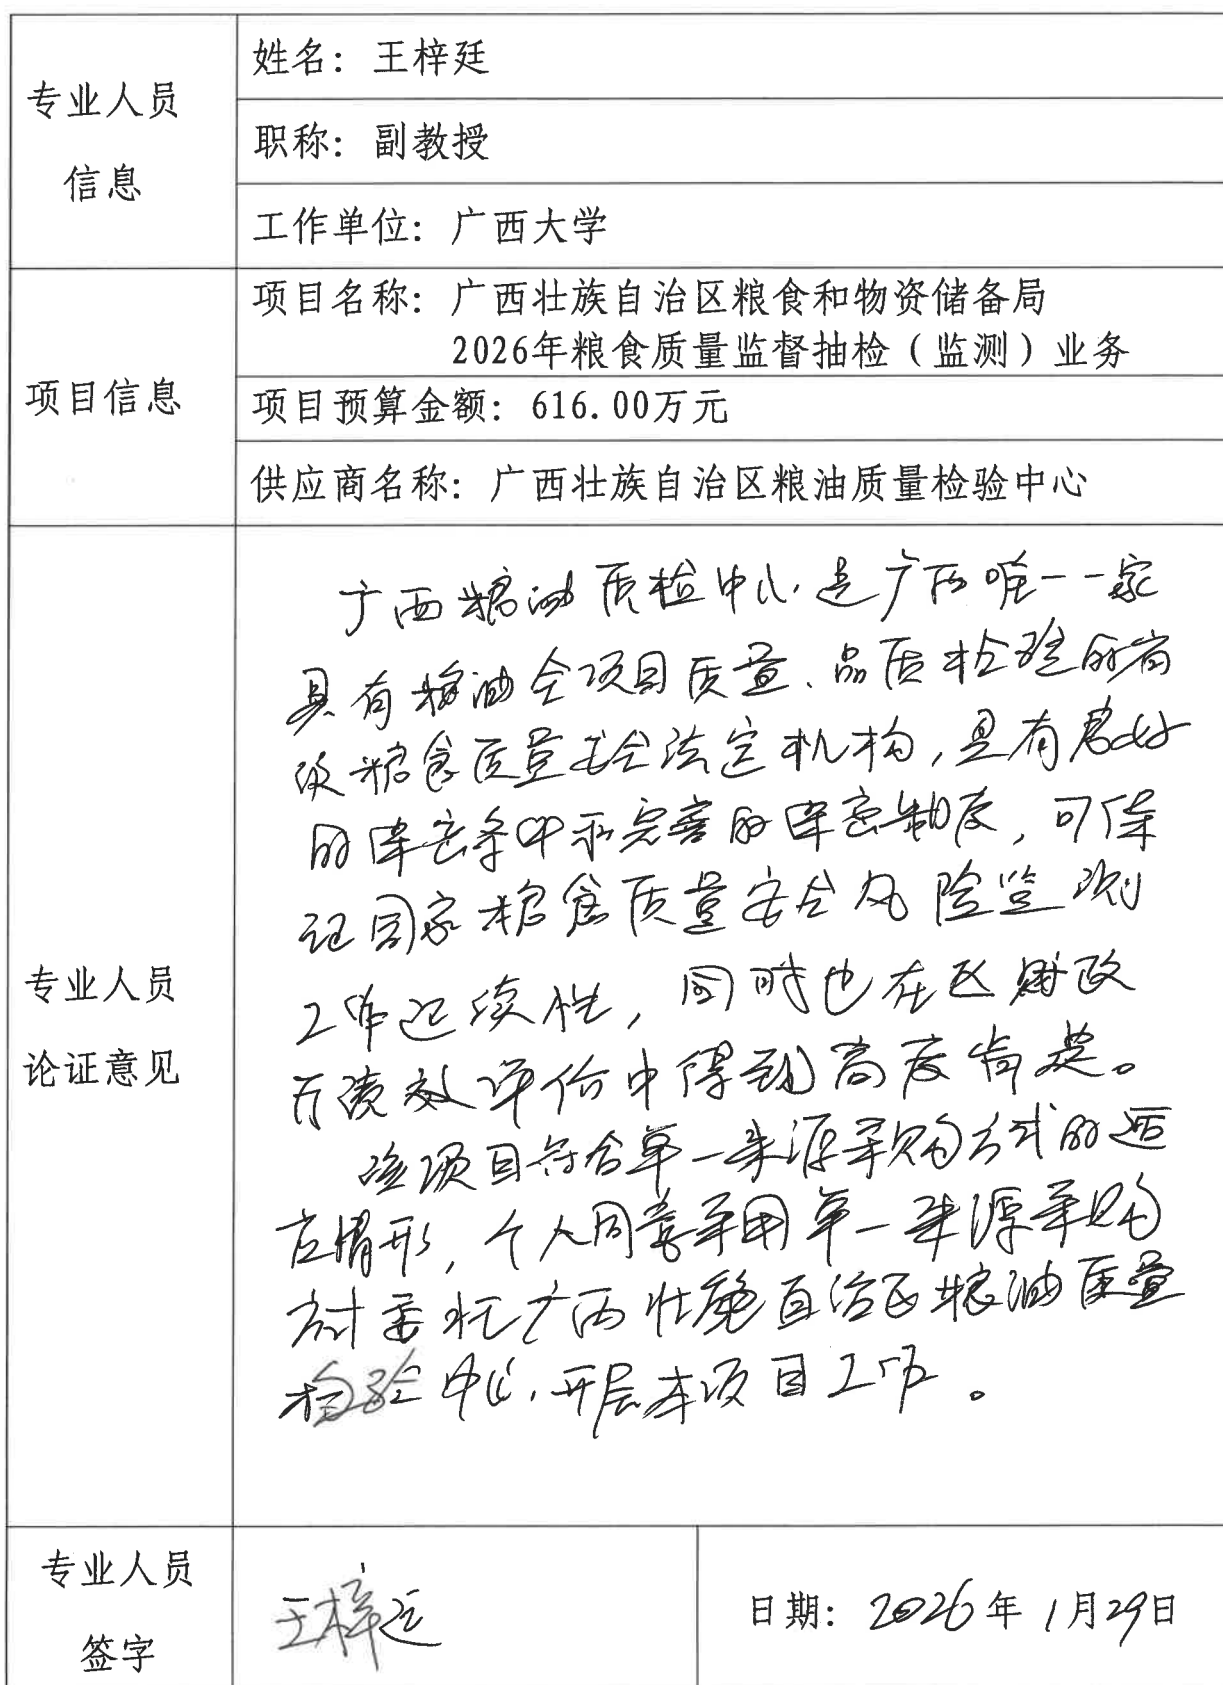 专业人员
信息
姓名：王梓廷
职称：副教授
工作单位：广西大学
项目信息
项目名称：广西壮族自治区粮食和物资储备局
2026年粮食质量监督抽检（监测）业务
项目预算金额：616.00万元
供应商名称：广西壮族自治区粮油质量检验中心
专业人员
论证意见
广西粮油质检中心是广西唯一一家
具有粮油全项目质量、品质检验的省
级粮食质量安全法定机构，具有良好
的保密条件和完善的保密制度，可保
证国家粮食质量安全风险监测
工作连续性，同时也在区财政
厅绩效评价中得到高度肯定。
该项目符合单一来源采购方式的适
应情形，个人同意采用单一来源采购
方式委托广西壮族自治区粮油质量
检验中心开展本项目工作。
专业人员
签字
王梓廷
日期：2026年1月29日